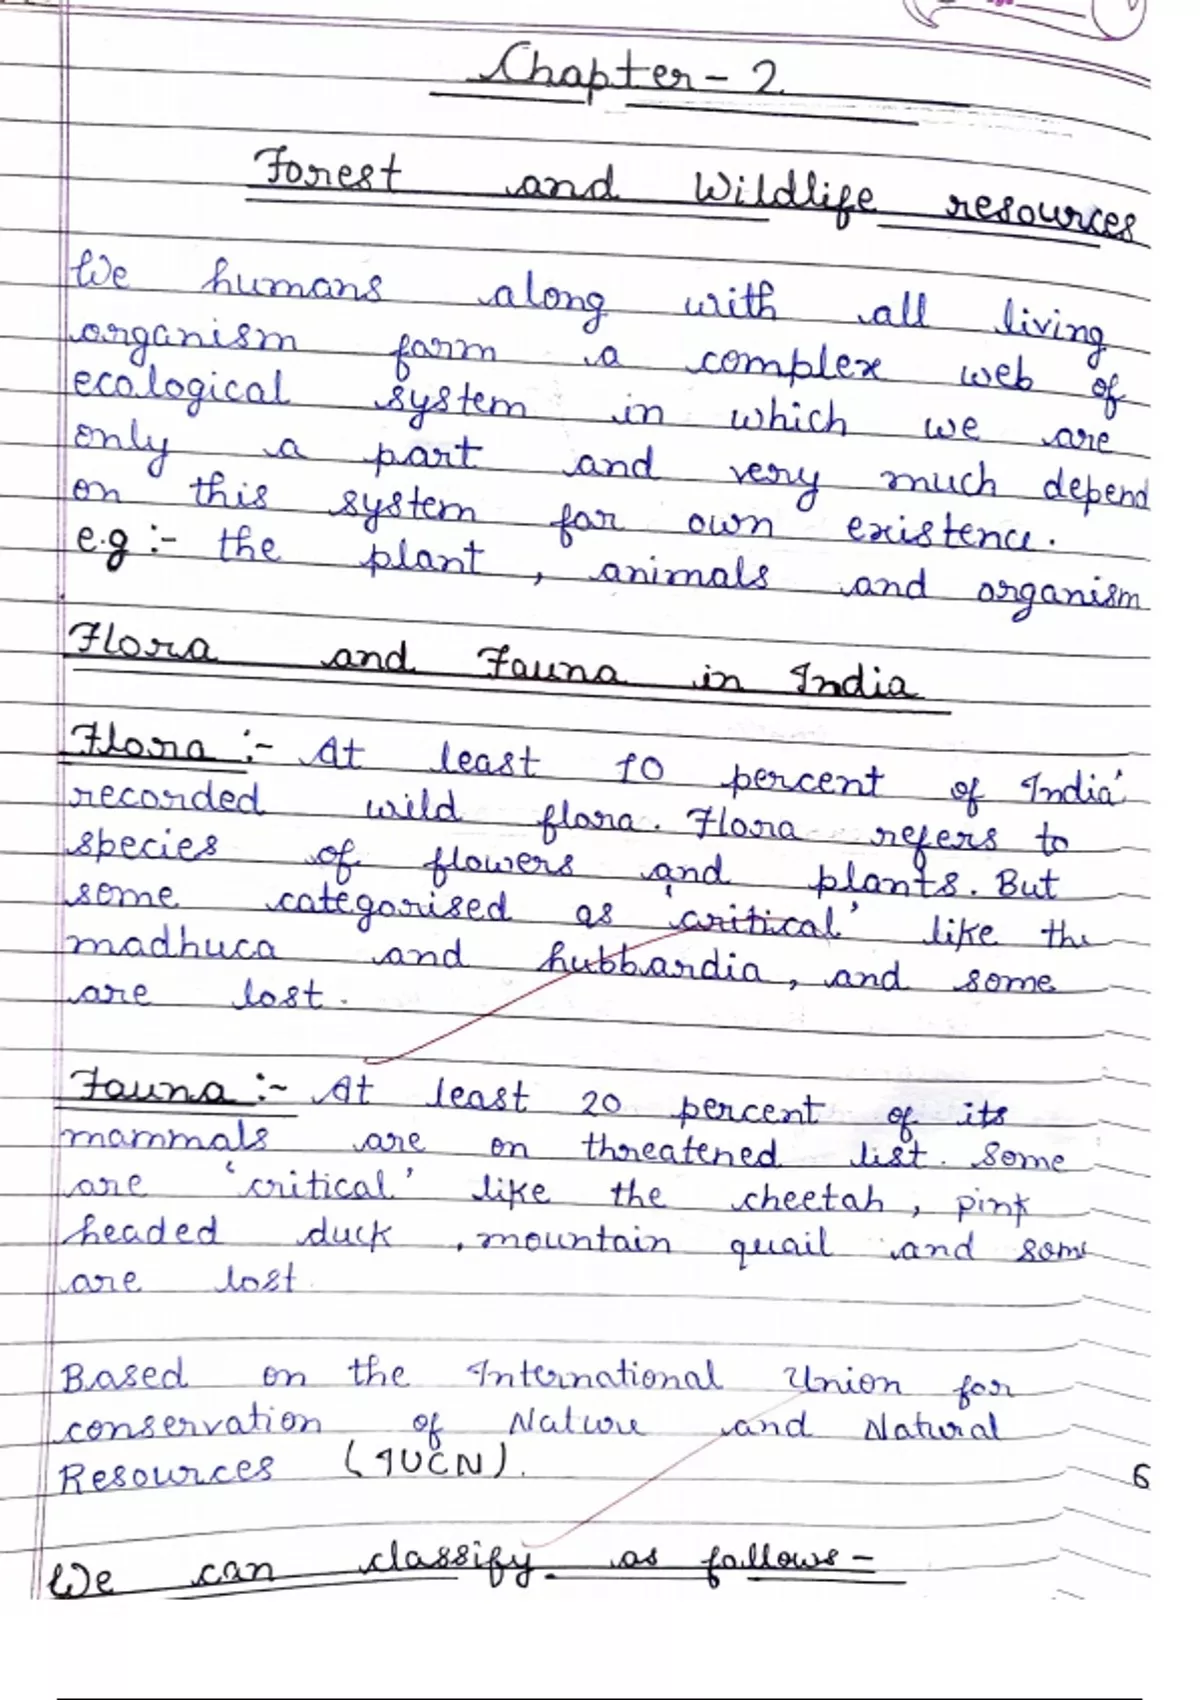 Chapter - 2
Forest and Wildlife resources
We humans along with all living
organism form a complex web of
ecological system in which we are
only a part and very much depend
on this system for own existence.
e.g :- the plant , animals and organism
Flora and Fauna in India
Flora :- At least 10 percent of India'
recorded wild flora. Flora refers to
species of flowers and plants. But
some categorised as 'critical' like the
madhuca and hubbardia, and some
are lost.
Fauna :- At least 20 percent of its
mammals are on threatened list. Some
are 'critical' like the cheetah, pink
headed duck , mountain quail and some
are lost.
Based on the International Union for
conservation of Nature and Natural
Resources (IUCN).
6
We can classify as follows -